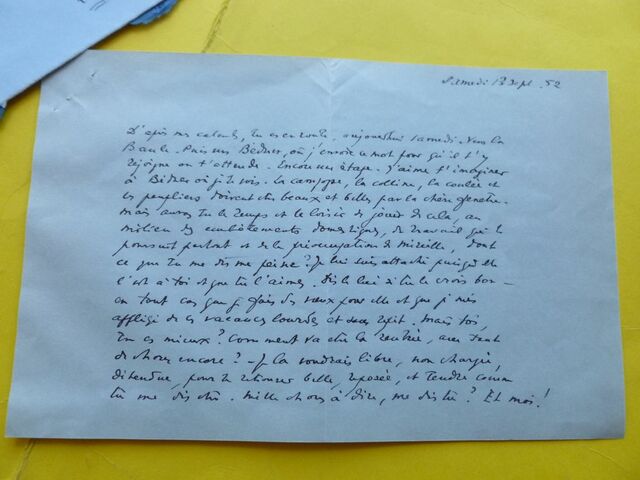 Samedi 13 Sept. 52
D'après mes calculs, tu es en route aujourd'hui samedi vers la
Baule. Puis sur Béduer, où j'envoie ce mot pour qu'il t'y
rejoigne ou t'attende. Encore une étape. J'aime t'imaginer
à Béduer où je te vois. La campagne, la colline, la coulée et
les peupliers doivent être beaux et belles par la chère fenêtre.
Mais auras-tu le temps et le loisir de jouir de cela, au
milieu des embêtements domestiques, du travail qui te
poursuit partout et de la préoccupation de Mireille, dont
ce que tu me dis me peine? Je lui suis attaché puisqu'elle
t'est à toi et que tu l'aimes. Dis le lui si tu le crois bon —
en tout cas que je fais des vœux pour elle et que je suis
affligé de ces vacances lourdes et sans répit. Mais toi,
tu es mieux? Comment va être la rentrée, avec tant
de choses encore? — Je la voudrais libre, non chargée,
détendue, pour te retrouver belle, reposée, et tendre comme
tu me dis être. Mille choses à dire, me dis-tu? Et moi!